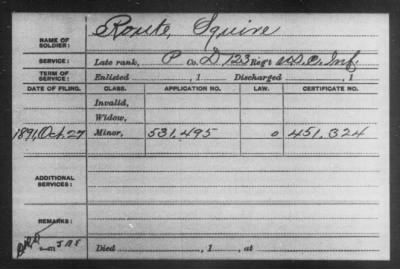 NAME OF SOLDIER: Rouste, Squire
SERVICE: Late rank, P Co. D 123 Reg't U.S.C. Inf.
TERM OF SERVICE: Enlisted , 1 Discharged , 1
DATE OF FILING. CLASS. APPLICATION NO. LAW. CERTIFICATE NO.
Invalid,
Widow,
1891, Oct. 27 Minor, 531,495 0 451,324
ADDITIONAL SERVICES:
REMARKS:
Died , 1 , at